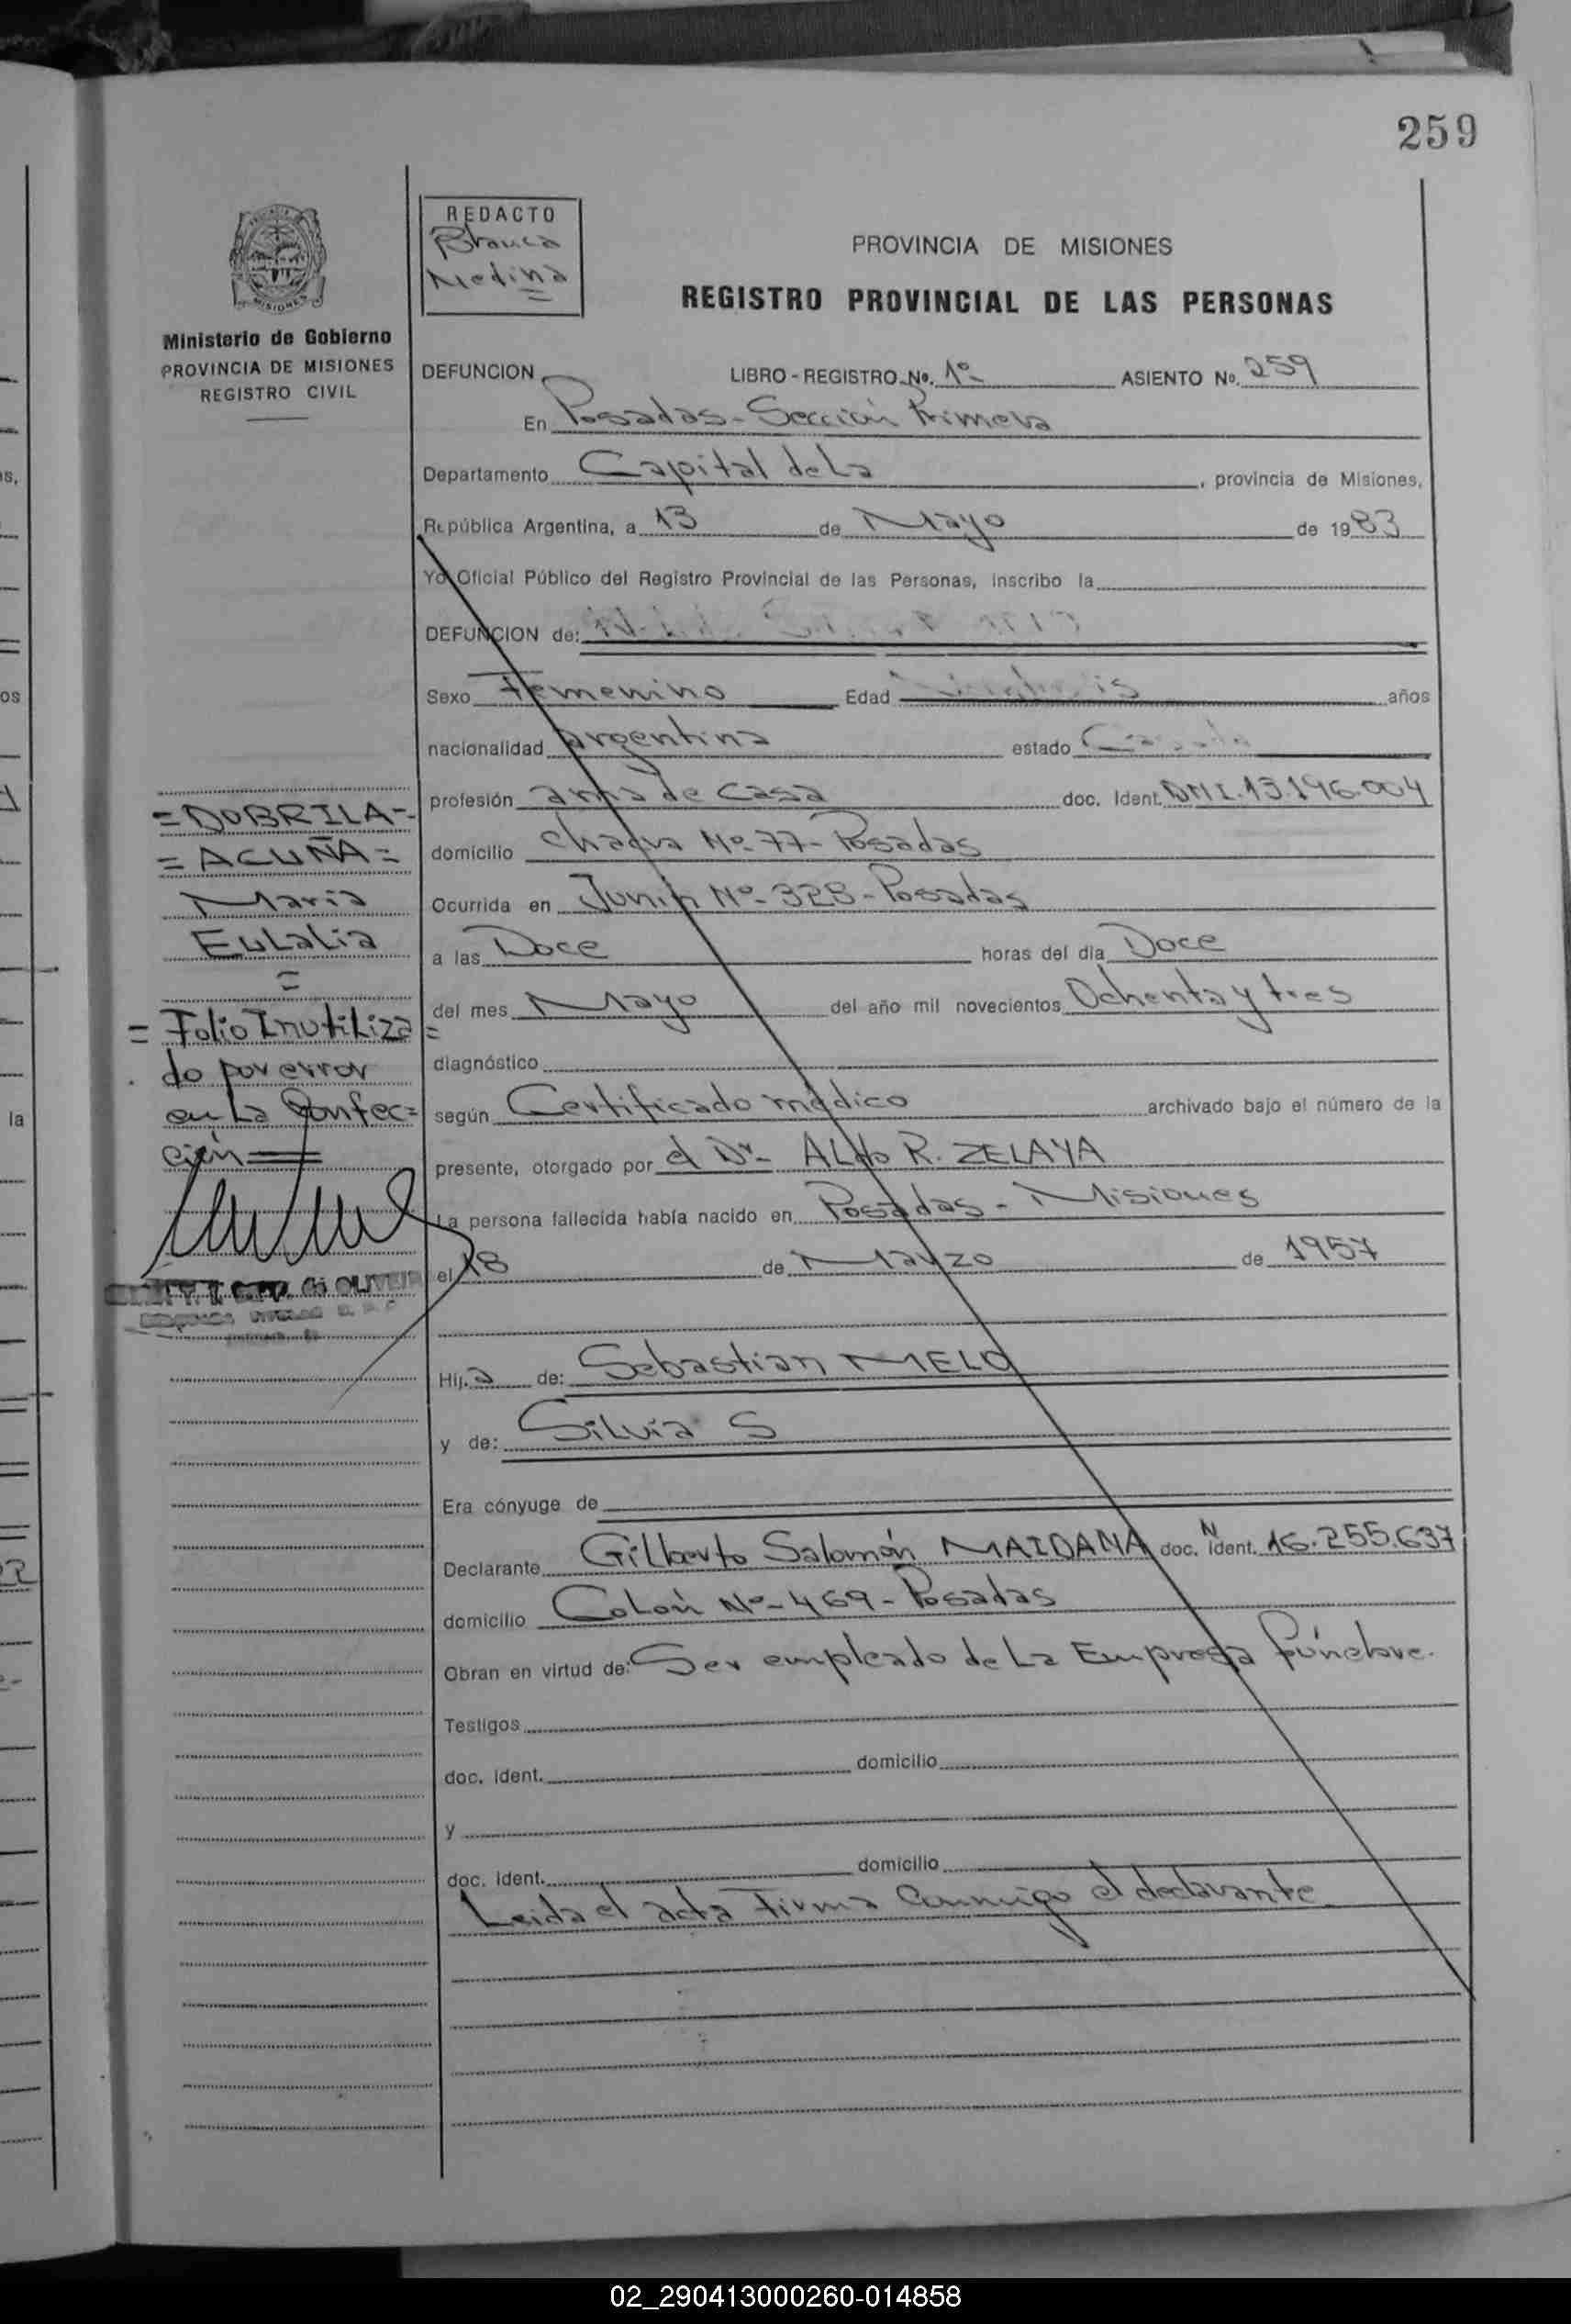 259
REDACTO
Blanca
Medina
PROVINCIA DE MISIONES
REGISTRO PROVINCIAL DE LAS PERSONAS
MISIONES
Ministerio de Gobierno
PROVINCIA DE MISIONES
REGISTRO CIVIL
DEFUNCION LIBRO-REGISTRO No. 1º- ASIENTO No. 259
En Posadas-Sección Primera
Departamento Capital de La, provincia de Misiones,
República Argentina, a 13 de Mayo de 1983
Yo Oficial Público del Registro Provincial de las Personas, inscribo la
DEFUNCION de:
Sexo Femenino Edad años
nacionalidad argentina estado Casada
profesión ama de casa doc. Ident. DNI.13.196.004
domicilio chacra Nº-77-Posadas
Ocurrida en Junin Nº-328-Posadas
a las Doce horas del día Doce
del mes Mayo del año mil novecientos Ochenta y tres
diagnóstico
según Certificado médico archivado bajo el número de la
presente, otorgado por el Dr- ALdo R. ZELAYA
La persona fallecida había nacido en Posadas - Misiones
el 18 de Marzo de 1957
Hij.a de: Sebastian MELO
y de: Silvia S
Era cónyuge de
Declarante Gilberto Salomón MAIDANA doc. N Ident. 16.255.637
domicilio Colón Nº-469-Posadas
Obran en virtud de: Ser empleado de La Empresa fúnebre.
Testigos
doc. ident. domicilio
y
doc. ident. domicilio
Leida el acta Firma Conmigo el declarante
=DOBRILA-
=ACUÑA=
Maria
Eulalia
=
=Folio Inutiliza=
do por error
en La Confec=
ción
OLIVEIRA
la
os
22
02_290413000260-014858